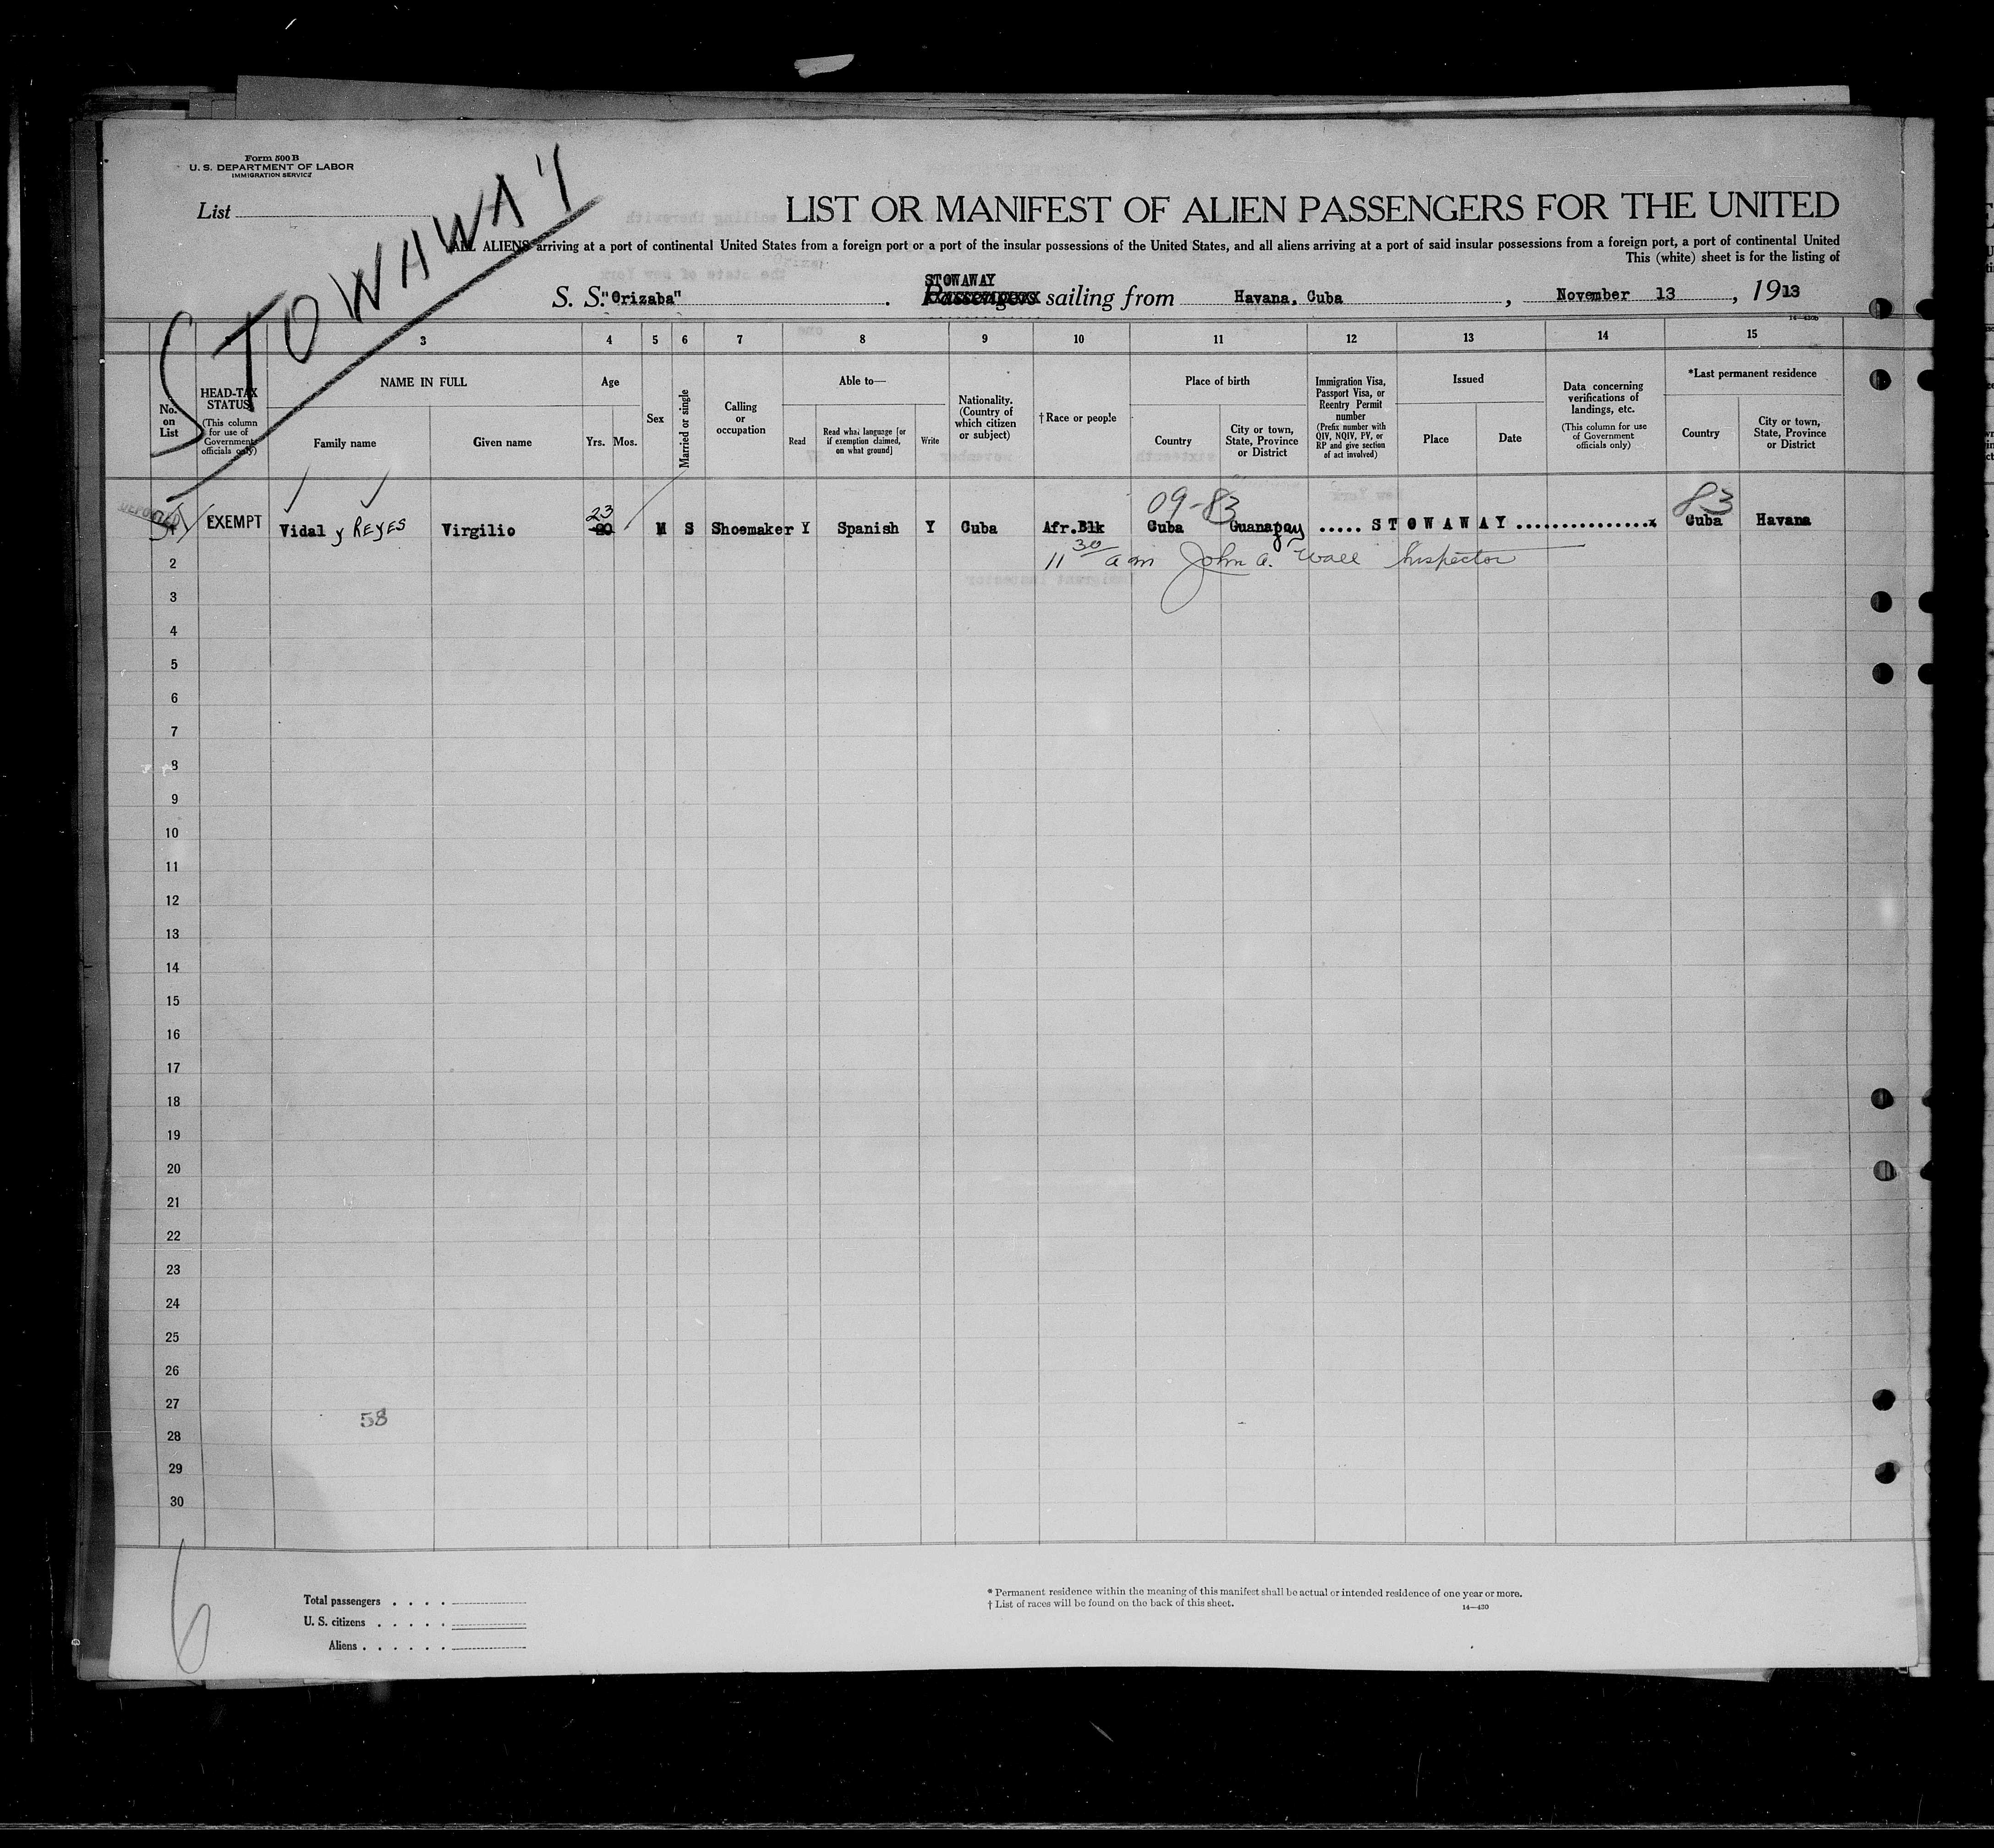 Form 500 B
U. S. DEPARTMENT OF LABOR
IMMIGRATION SERVICE
List
STOWAWAY
LIST OR MANIFEST OF ALIEN PASSENGERS FOR THE UNITED
ALL ALIENS arriving at a port of continental United States from a foreign port or a port of the insular possessions of the United States, and all aliens arriving at a port of said insular possessions from a foreign port, a port of continental United
This (white) sheet is for the listing of
STOWAWAY
S. S. "Orizaba" . Passengers sailing from Havana, Cuba , November 13 , 1913
14—430b
3 4 5 6 7 8 9 10 11 12 13 14 15
No. on List
HEAD-TAX STATUS (This column for use of Government officials only)
NAME IN FULL
Family name
Given name
Age
Yrs. Mos.
Sex
Married or single
Calling or occupation
Able to—
Read
Read what language [or if exemption claimed, on what ground]
Write
Nationality. (Country of which citizen or subject)
†Race or people
Place of birth
Country
City or town, State, Province or District
Immigration Visa, Passport Visa, or Reentry Permit number (Prefix number with QIV, NQIV, PV, or RP and give section of act involved)
Issued
Place
Date
Data concerning verifications of landings, etc. (This column for use of Government officials only)
*Last permanent residence
Country
City or town, State, Province or District
09-83 83
DEPORTED
23
1 EXEMPT Vidal y REYES Virgilio 20 M S Shoemaker Y Spanish Y Cuba Afr.Blk Cuba Guanajay ..... S T O W A W A Y ...............x Cuba Havana
11 30 am John A. Wall Inspector
2
3
4
5
6
7
8
9
10
11
12
13
14
15
16
17
18
19
20
21
22
23
24
25
26
27
58
28
29
30
6
Total passengers . . . .
U. S. citizens . . . . .
Aliens . . . . . .
* Permanent residence within the meaning of this manifest shall be actual or intended residence of one year or more.
† List of races will be found on the back of this sheet.
14—430